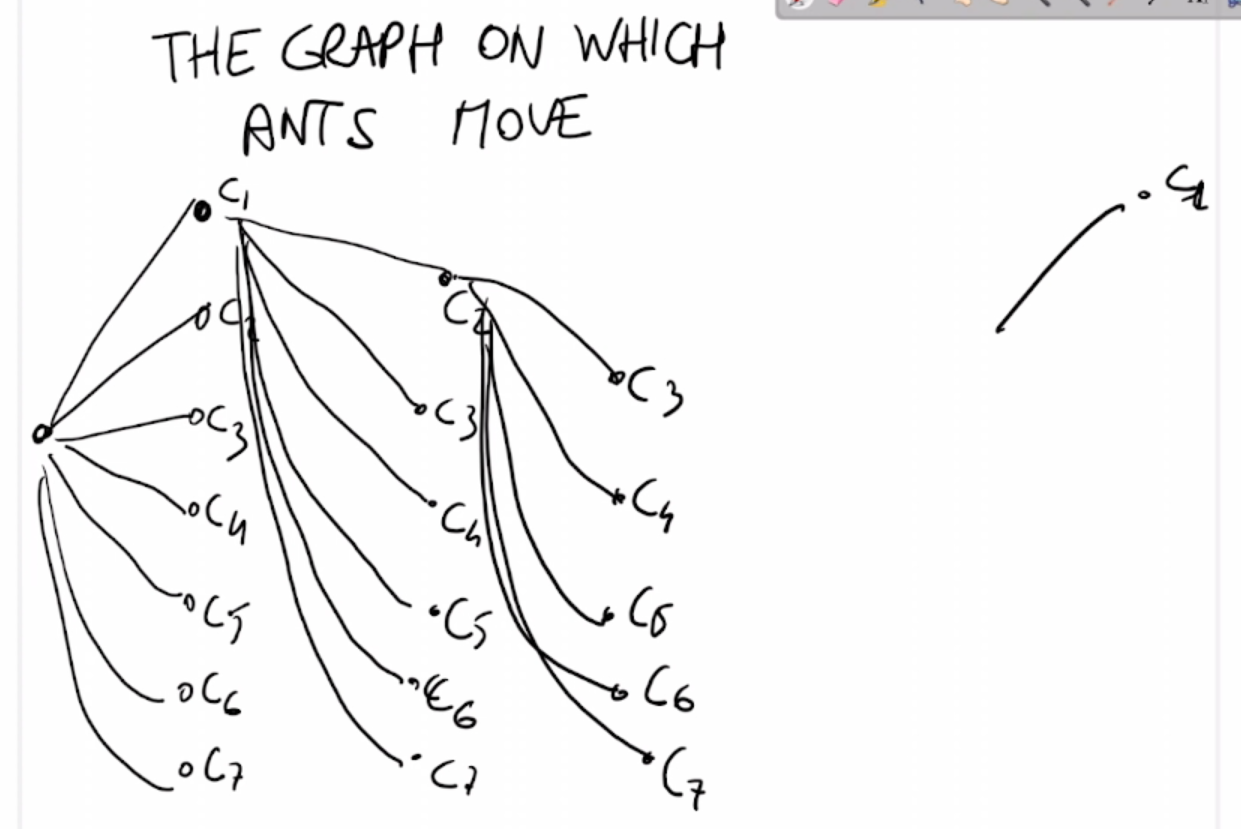 THE GRAPH ON WHICH
ANTS MOVE
C1
C2
C3
C4
C5
C6
C7
C2
C3
C4
C5
C6
C7
C3
C4
C6
C6
C7
C1